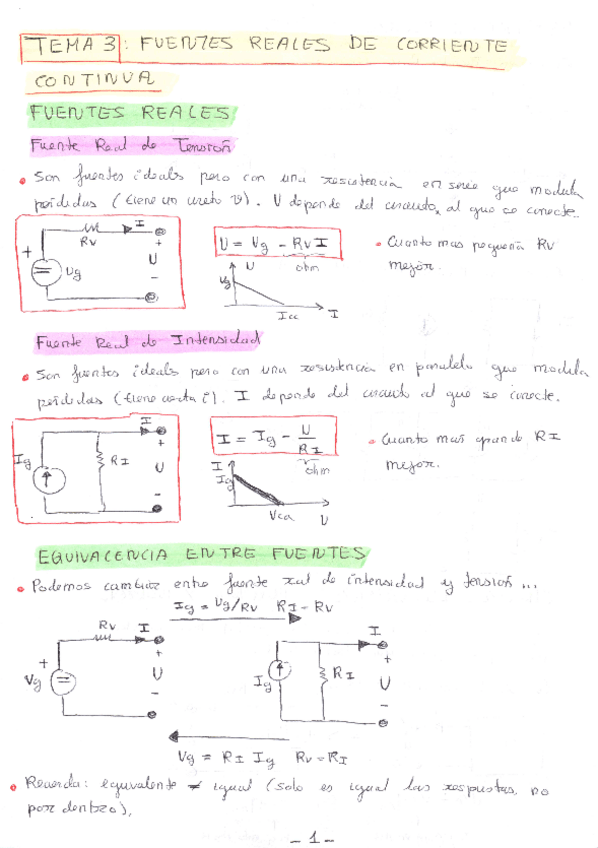 TEMA 3: FUENTES REALES DE CORRIENTE
CONTINUA
FUENTES REALES
Fuente Real de Tensión
• Son fuentes ideales pero con una resistencia en serie que modula
pérdidas (tiene un cierto v). U depende del circuito al que se conecte.
I
+ Rv +
Ug U
-
U = Vg - Rv I
ohm
U
Vg
Icc I
• Cuanto mas pequeña Rv
mejor.
Fuente Real de Intensidad
• Son fuentes ideales pero con una resistencia en paralelo que modula
pérdidas (tiene cierta i). I depende del circuito al que se conecte.
I
+
Ig RI U
-
I = Ig - U/RI
ohm
I
Ig
Vca U
• Cuanto mas grande RI
mejor.
EQUIVALENCIA ENTRE FUENTES
• Podemos cambiar entre fuente real de intensidad y tensión ...
Ig = Vg/Rv RI = Rv
Rv I
+ +
Vg U
-
I
+
Ig RI U
-
Vg = RI Ig Rv = RI
• Recuerda: equivalente ≠ igual (solo es igual las respuestas, no
por dentro),
- 1 -